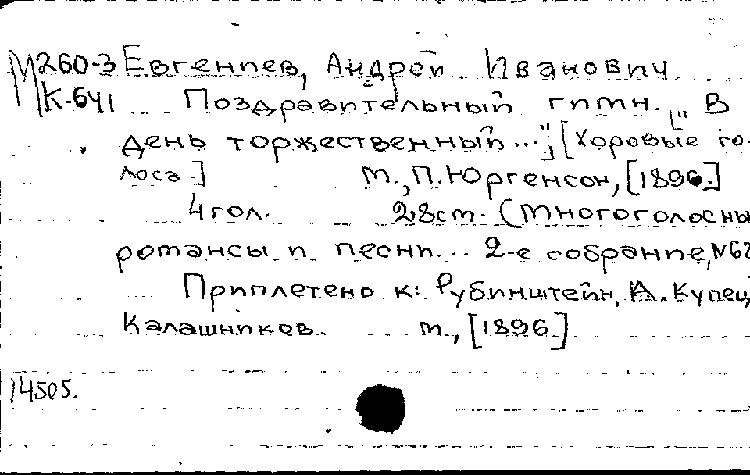 М260-3 Евгениев, Андрей Иванович
К-641 Поздравительный гимн. „В
день торжественный..."; [Хоровые го-
лоса] М., П. Юргенсон, [1896]
4 гол. 28 см. (Многоголосны
романсы и песни... 2-е собрание, №62
Приплетено к: Рубинштейн, А. Купец
Калашников. М., [1896]
14505.